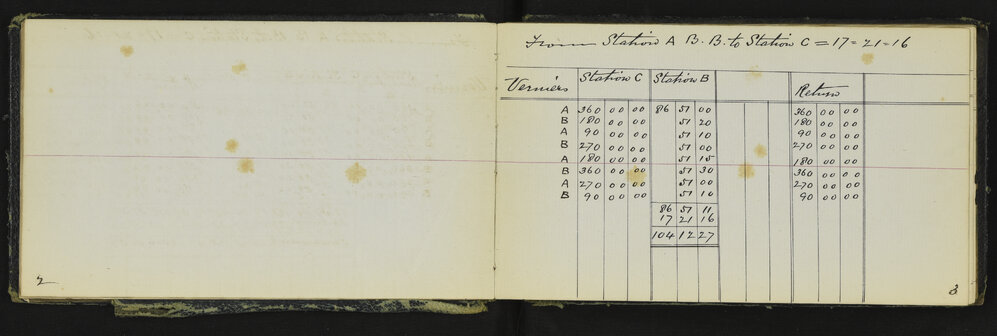 2
From Station A B. B. to Station C = 17 = 21 = 16
Verniers Station C Station B Return
A 360 00 00 86 51 00 360 00 00
B 180 00 00 51 20 180 00 00
A 90 00 00 51 10 90 00 00
B 270 00 00 51 00 270 00 00
A 180 00 00 51 15 180 00 00
B 360 00 00 51 30 360 00 00
A 270 00 00 51 00 270 00 00
B 90 00 00 51 10 90 00 00
86 51 11
17 21 16
104 12 27
3